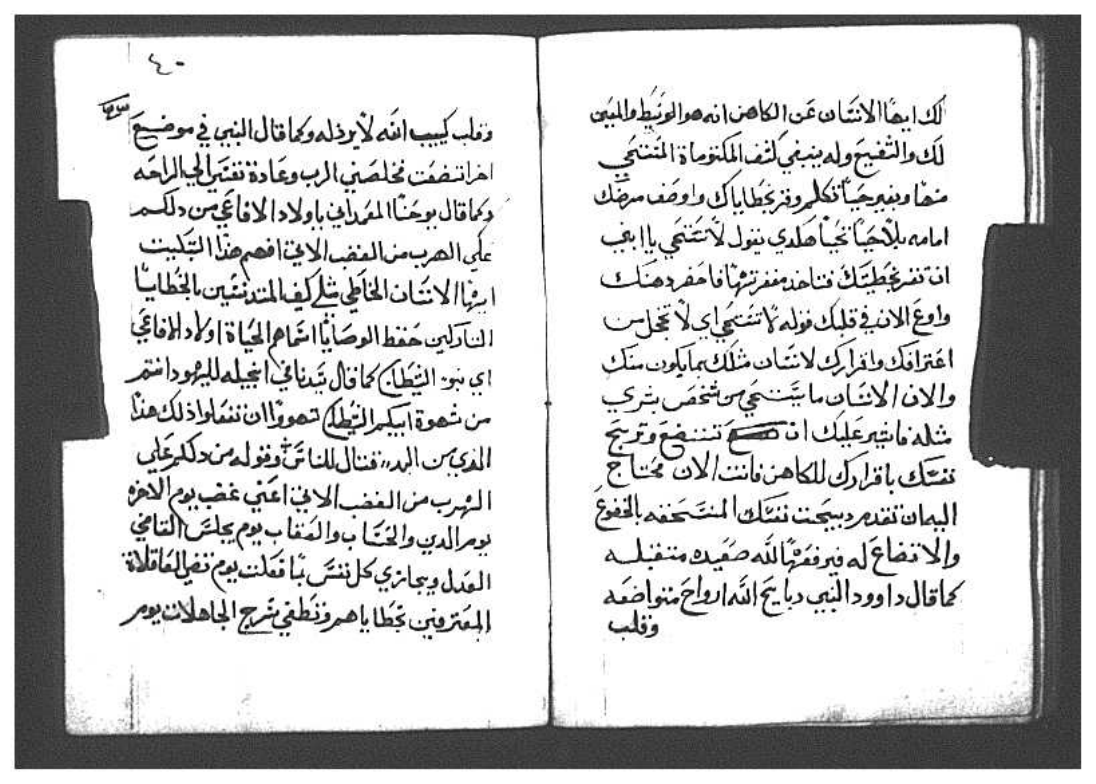 لك ايها الانسان عن الكاهن انه هو الوسيط والمعين
لك والشفيع وله ينبغي كشف المكتومات المستحي
منها وبغير حيا تكلم وقر بخطاياك واوصف مرضك
امامه بلا حيا نحيا هلدي يقول لا تستحي يا ابني
ان تقر بخطيتك فتاخد مغفرتها فاحفر دهنك
واوع الان في قلبك قوله لا تستحي اي لا تخجل من
اعترافك واقرارك لانسان مثلك بما يكون منك
والان الانسان ما يستحي من شخص بشري
مثله فاشير عليك ان تتضع وتربح
نفسك باقرارك للكاهن فانت الان محتاج
اليه ان تقدم دبيحت نفسك المنسحقه بالخضوع
والاتضاع له فيرفعها لله صعيده متقبله
كما قال داوود النبي دبايح الله ارواح متواضعه
وقلب
٤٠
وقلب كييب الله لا يرذله وكما قال النبي في موضع
اخر اتضعت فخلصني الرب وعادة نفسي الي الراحه
وكما قال يوحنا المعمداني يا ولاد الافاعي من دلكم
علي الهرب من الغضب الاتي افهم هذا التبكيت
ايها الانسان الخاطي مثلي كيف المتدنسين بالخطايا
التاركين حفظ الوصايا اسماهم الحياة اولاد الافاعي
اي بنو الشيطان كما قال سيدنا في انجيله لليهود انتم
من شهوة ابيكم الشيطان تهووا ان تفعلوا ذلك هذا
الذي من البدء قتال للناس وقوله من دلكم علي
الهرب من الغضب الاتي اعني غضب يوم الاخره
يوم الدين والحساب والعقاب يوم يجلس القاضي
العدل ويجازي كل نفس بما فعلت يوم العاقلاة
المعترفين بخطاياهم وتطفي سرج الجاهلات يوم